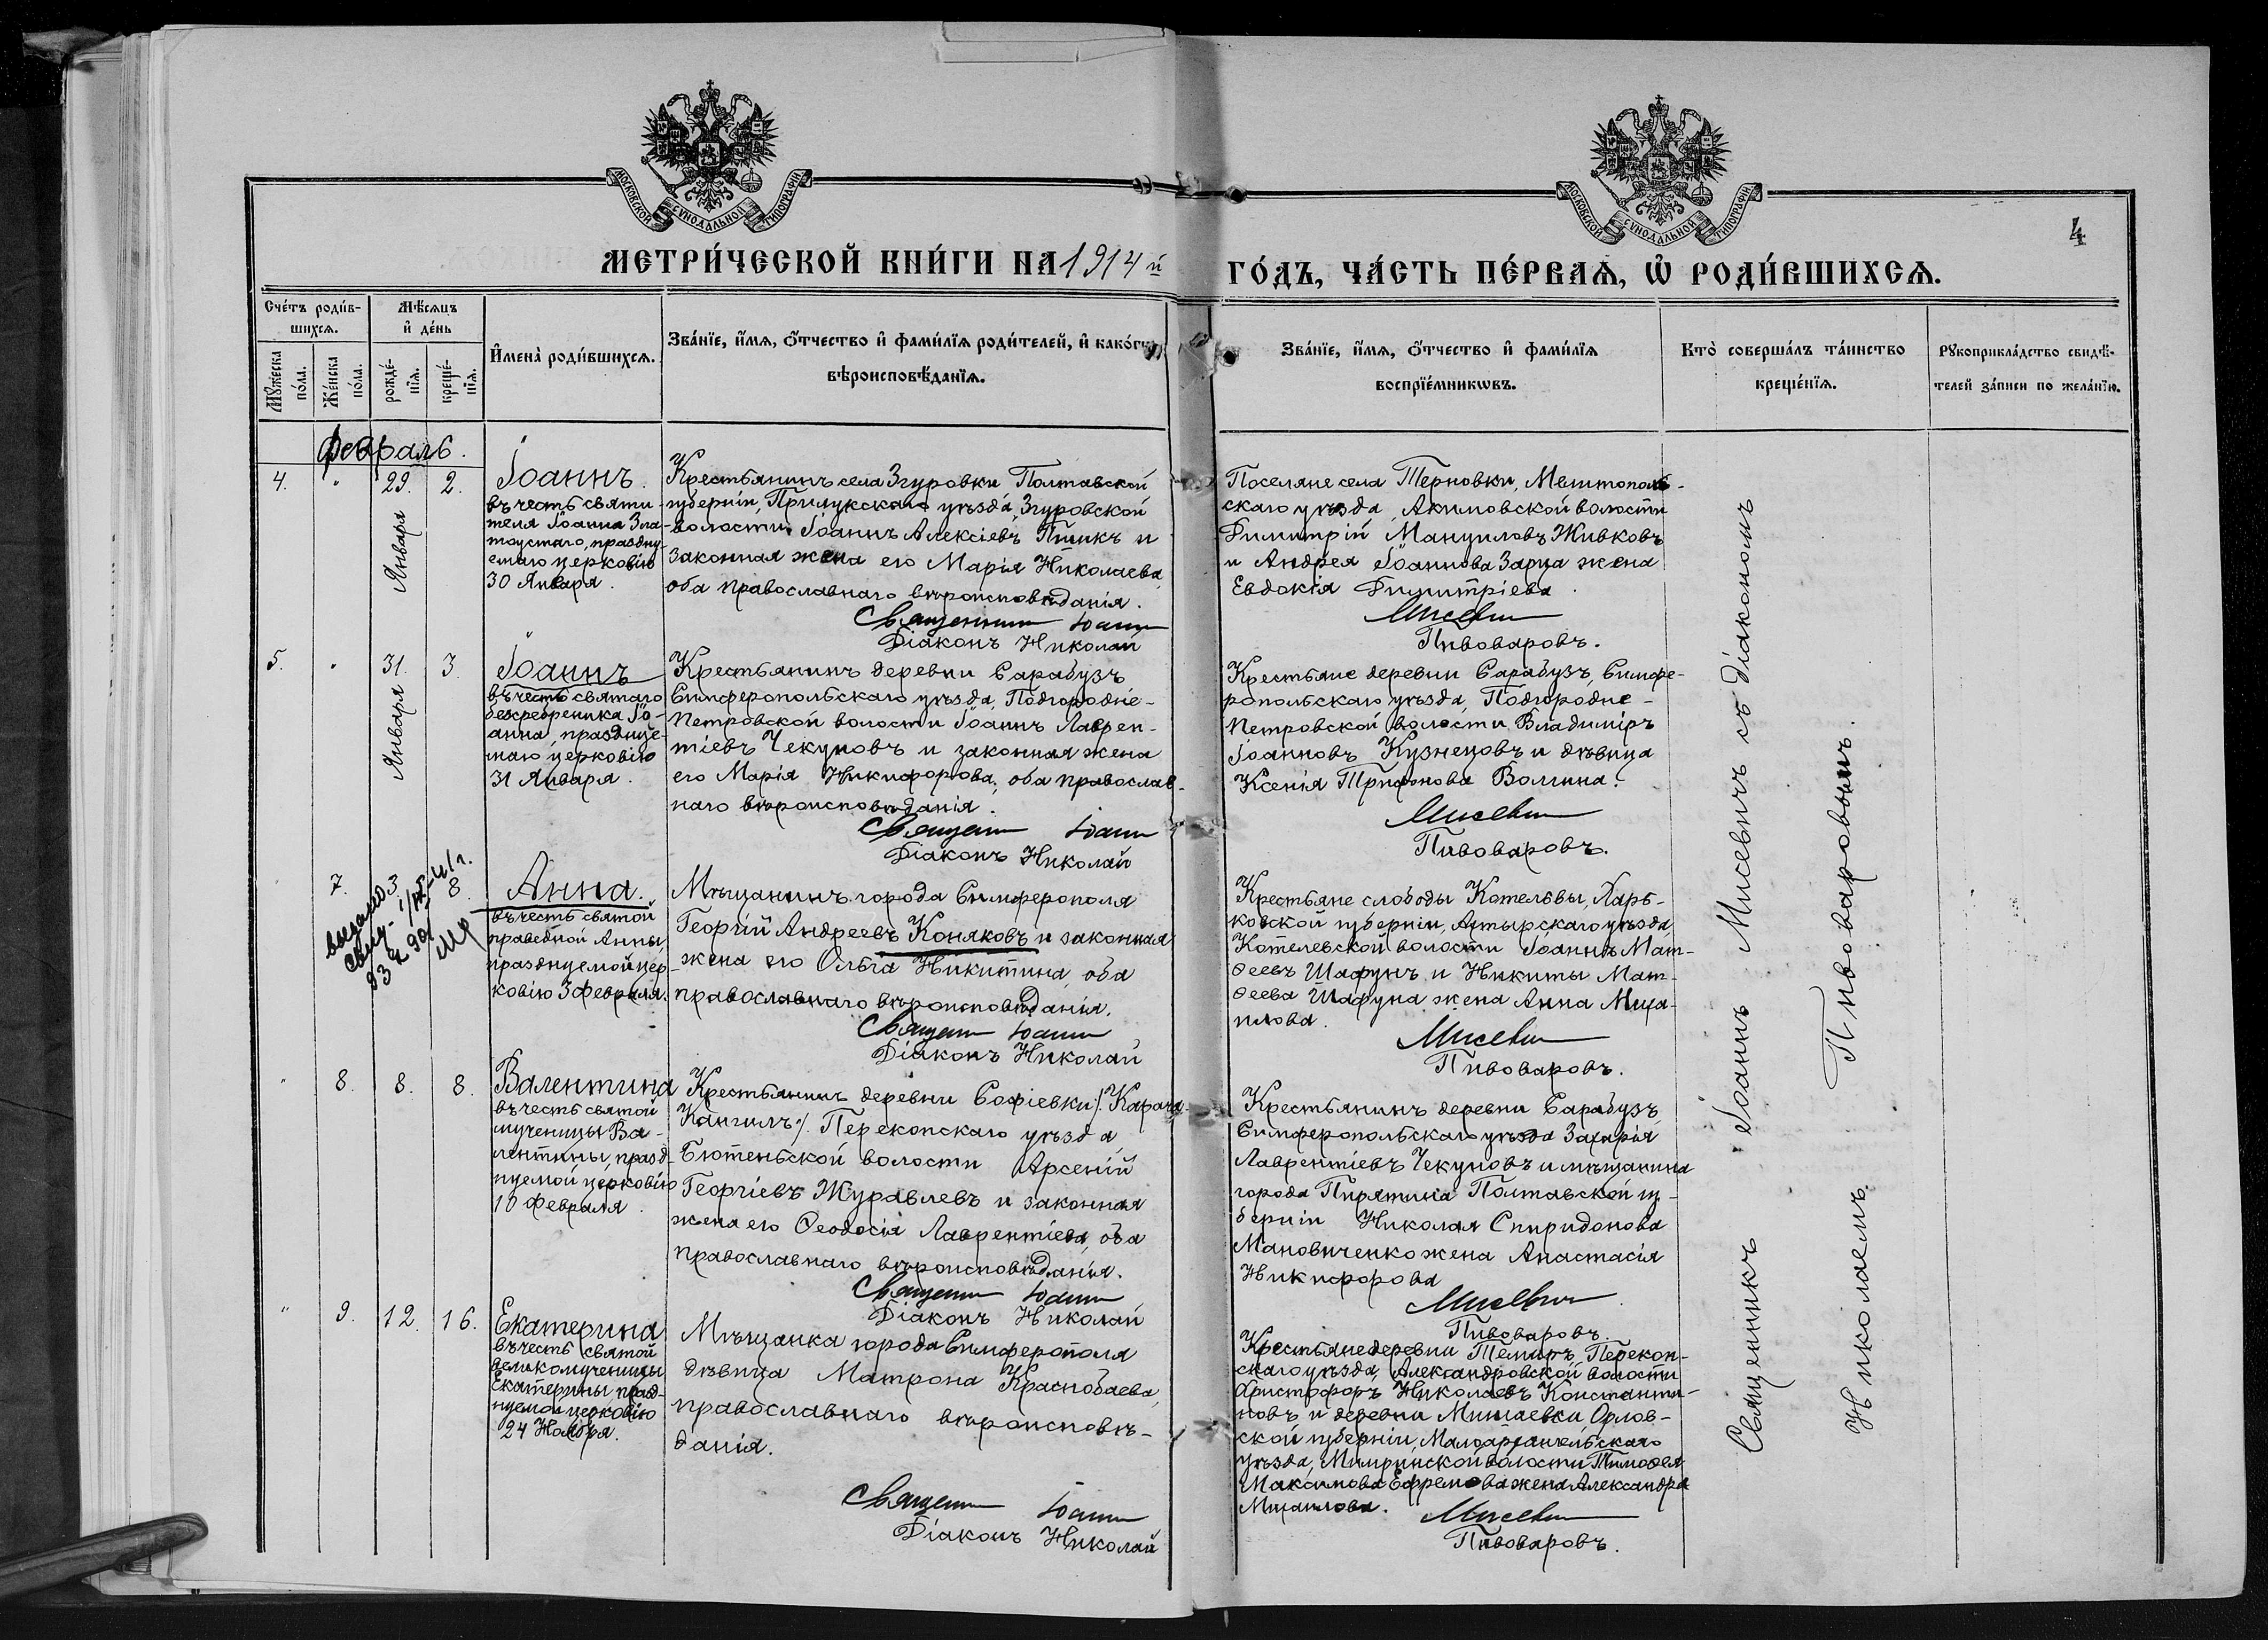 МОСКОВСКОЙ СУНОДАЛЬНОЙ ТИПОГРАФІИ
МОСКОВСКОЙ СУНОДАЛЬНОЙ ТИПОГРАФІИ
4
МЕТРИ́ЧЕСКОЙ КНИ́ГИ НА 1914 й
ГО́ДЪ, ЧА́СТЬ ПЕ́РВАѦ, Ѡ҆ РОДИ́ВШИХСѦ.
Сче́тъ роди́в-
шихсѧ.
Мꙋжеска по́ла.
Же́нска по́ла.
Мѣ́сѧцъ
и҆ де́нь
рожде́-
нїѧ.
креще́-
нїѧ.
И҆мена̀ роди́вшихсѧ.
Зва́нїе, и҆́мѧ, ѻ҆́тчество и҆ фами́лїѧ роди́телей, и҆ како́гѡ
вѣроисповѣ́данїѧ.
Зва́нїе, и҆́мѧ, ѻ҆́тчество и҆ фами́лїѧ
воспрїе́мникѡвъ.
Кто̀ соверша́лъ та́инство
креще́нїѧ.
Рꙋкоприкла́дство свидѣ́-
телей за́писи по жела́нїю.
Февраль.
4. " 29. 2.
Января
Іоаннъ.
въ честь святи-
теля Іоанна Зла-
тоустаго, праздну-
емаго церковію
30 Января.
Крестьянинъ села Згуровки Полтавской
губерніи, Прилукскаго уѣзда, Згуровской
волости Іоаннъ Алексіевъ Пшикъ и
законная жена его Марія Николаева,
оба православнаго вѣроисповѣданія.
Священникъ Іоаннъ
Діаконъ Николай
Поселяне села Терновки, Мелитополь-
скаго уѣзда, Акимовской волости
Димитрій Мануиловъ Живковъ
и Андрея Іоаннова Зарча жена
Евдокія Димитріева.
Мисевич
Пивоваровъ.
5. " 31. 3.
Января
Іоаннъ
въ честь святаго
безсребреника Іо-
анна, празднуе-
маго церковію
31 Января.
Крестьянинъ деревни Сарабузъ
Симферопольскаго уѣзда, Подгородне-
Петровской волости Іоаннъ Лаврен-
тіевъ Чекуновъ и законная жена
его Марія Никифорова, оба православ-
наго вѣроисповѣданія.
Священ Іоанн
Діаконъ Николай
Крестьяне деревни Сарабузъ, Симфе-
ропольскаго уѣзда, Подгородне-
Петровской волости Владиміръ
Іоанновъ Кузнецовъ и дѣвица
Ксенія Трифонова Волгина.
Мисевич
Пивоваровъ.
7. 3. 8.
выдано
Анна.
въ честь святой
праведной Анны,
празднуемой цер-
ковію 3 февраля.
Мѣщанинъ города Симферополя
Георгій Андреевъ Коняковъ и законная
жена его Ольга Никитина, оба
православнаго вѣроисповѣданія.
Священ Іоанн
Діаконъ Николай
Крестьяне слободы Котельвы, Харь-
ковской губерніи, Ахтырскаго уѣзда,
Котелевской волости Іоаннъ Мат-
ѳеевъ Шафунъ и Никиты Мат-
ѳеева Шафуна жена Анна Миха-
илова.
Мисевич
Пивоваровъ.
" 8. 8. 8.
Валентина
въ честь святой
мученицы Ва-
лентины, празд-
нуемой церковію
10 Февраля.
Крестьянинъ деревни Софіевки /: Карача-
Кангилъ :/ Перекопскаго уѣзда,
Бютеньской волости Арсеній
Георгіевъ Журавлевъ и законная
жена его Ѳеодосія Лаврентіева, оба
православнаго вѣроисповѣданія.
Священ Іоанн
Діаконъ Николай
Крестьянинъ деревни Сарабузъ
Симферопольскаго уѣзда Захарія
Лаврентіевъ Чекуновъ и мѣщанина
города Пирятина Полтавской гу-
берніи Николая Спиридонова
Мановиченко жена Анастасія
Никифорова
Мисевич
Пивоваровъ.
" 9. 12. 16.
Екатерина
въ честь святой
великомученицы
Екатерины празд-
нуемой церковію
24 Ноября.
Мѣщанка города Симферополя
дѣвица Матрона Краснобаева,
православнаго вѣроисповѣ-
данія.
Священ Іоанн
Діаконъ Николай
Крестьяне деревни Темиръ, Перекоп-
скаго уѣзда, Александровской волости
Христофоръ Николаевъ Константи-
новъ и деревни Мишаевки, Орлов-
ской губерніи, Малоархангельскаго
уѣзда, волости Тимоѳея
Максимова Ефремова жена Александра
Михаилова.
Мисевич
Пивоваровъ.
Священникъ Іоаннъ Мисевичъ съ діакономъ
Николаемъ Пивоваровымъ.